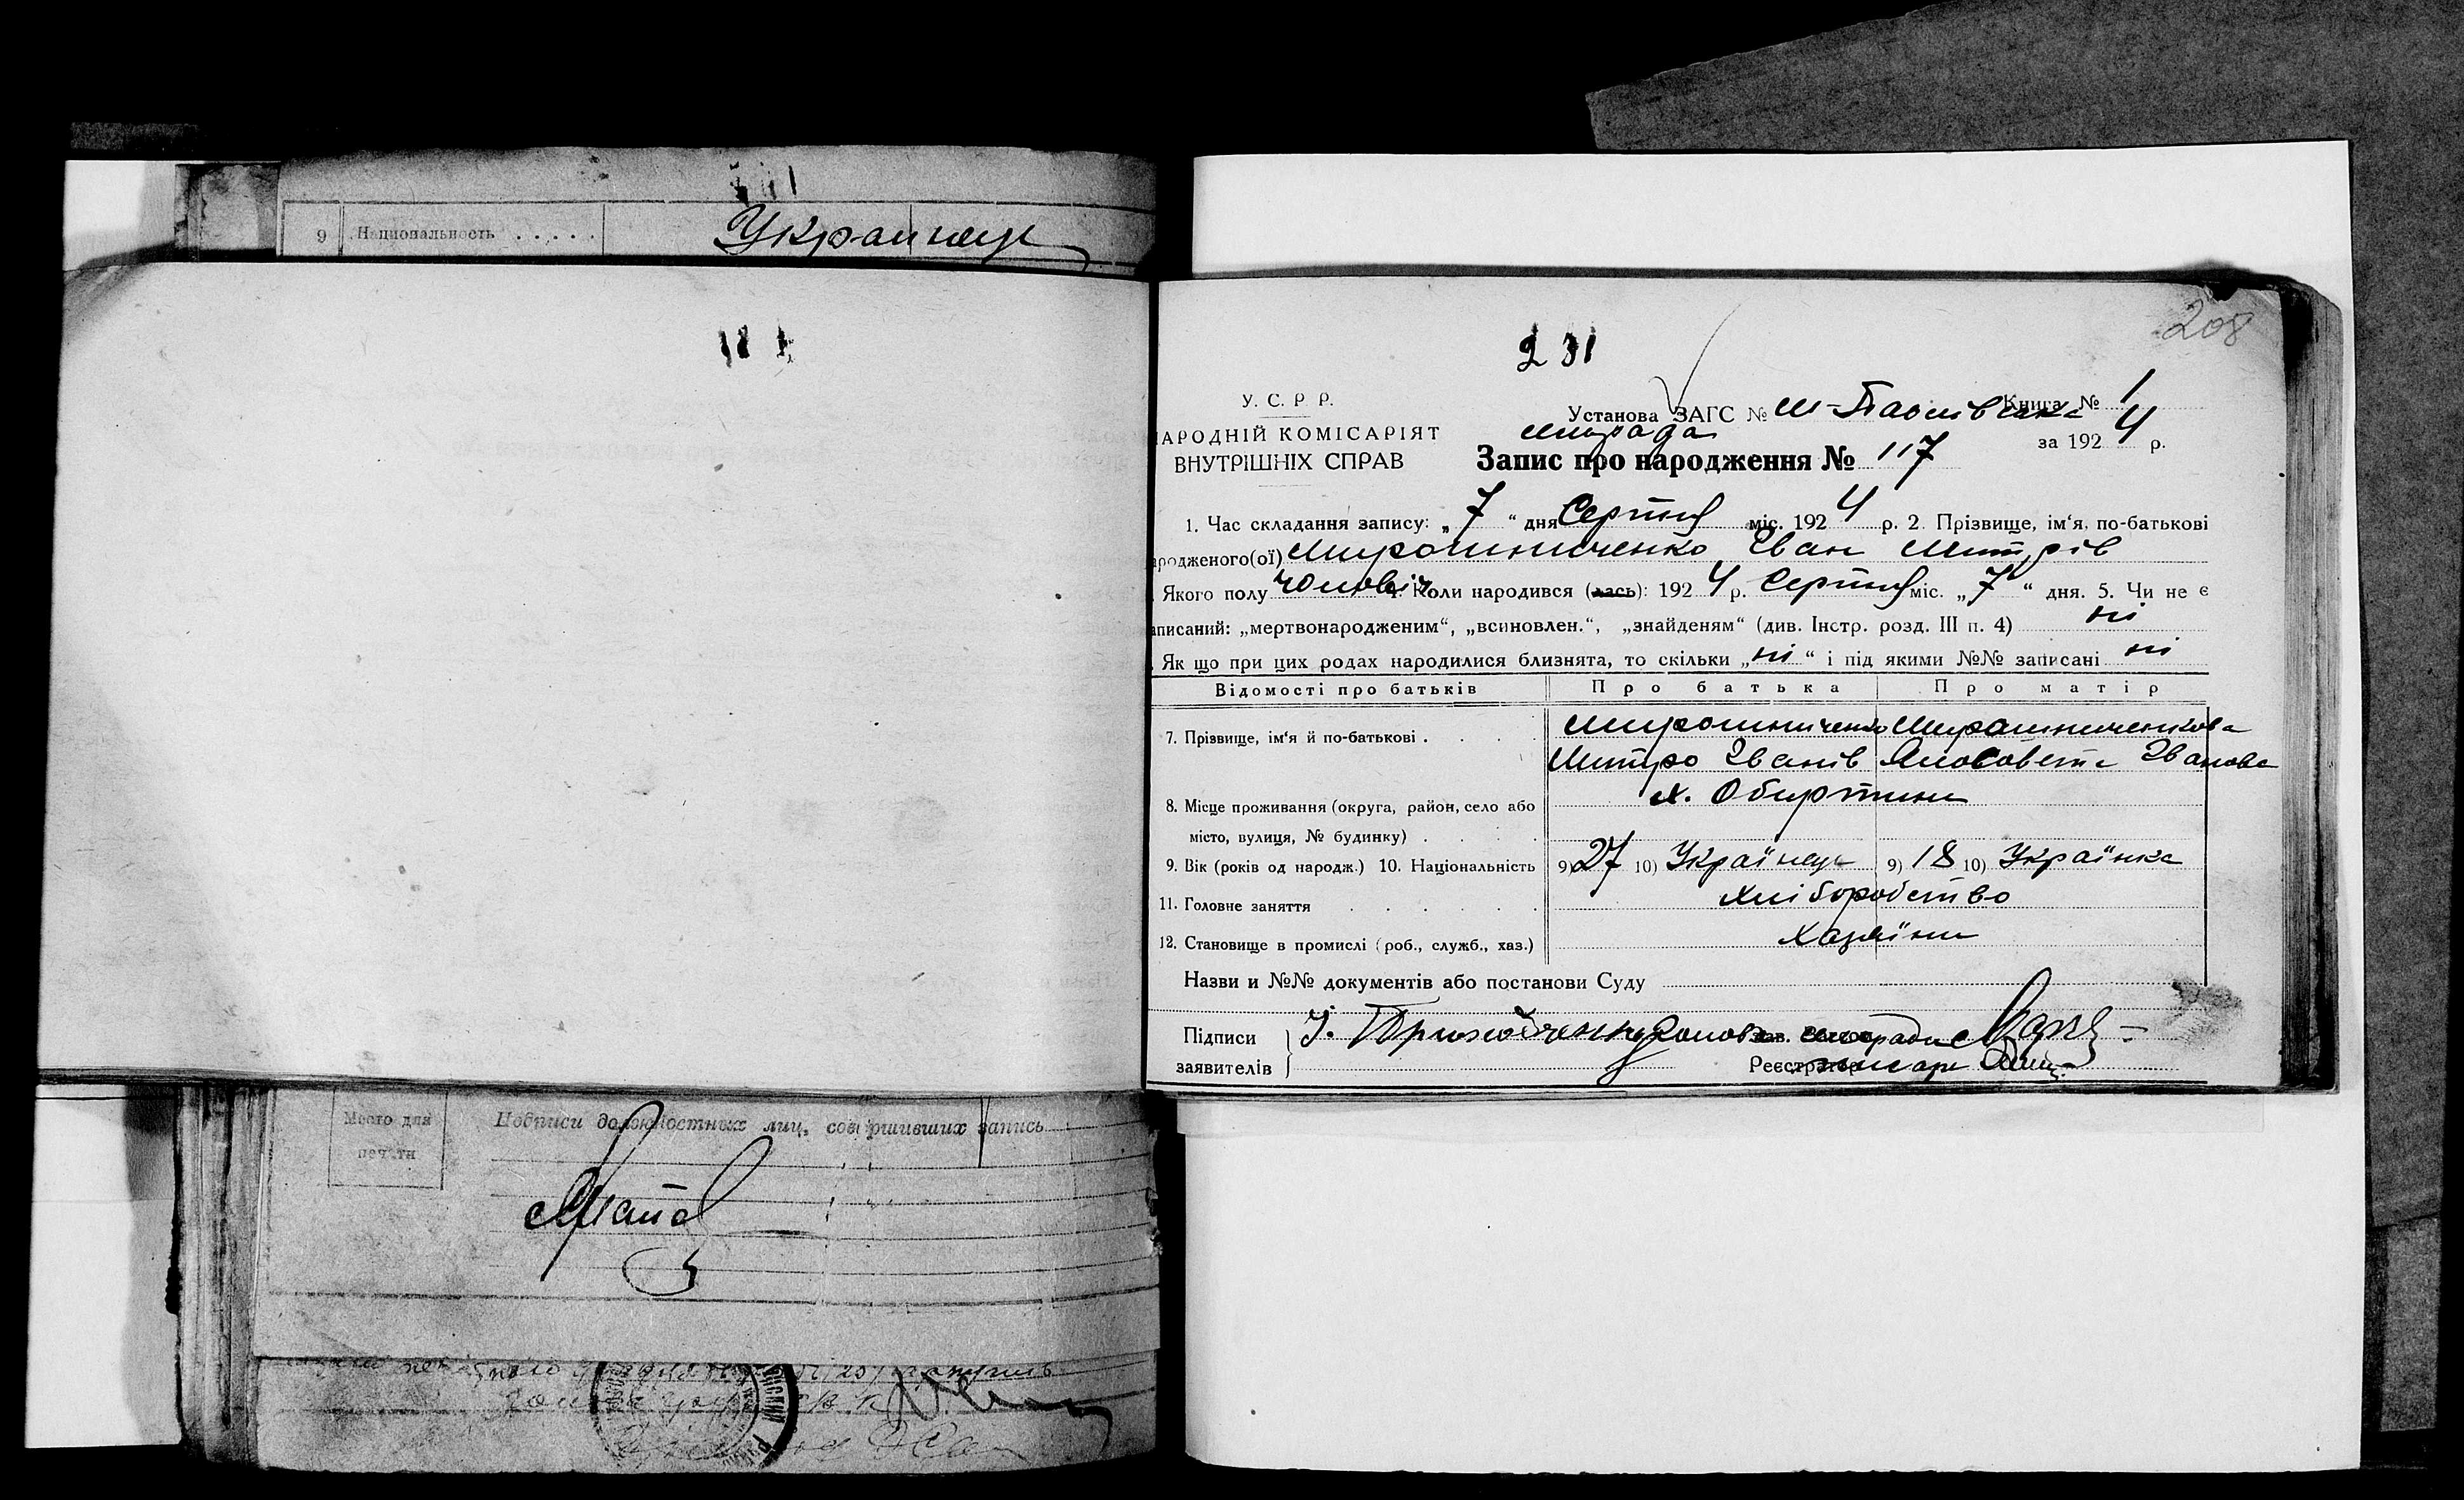 9 Национальность . . . . . Украинец
208
231
У. С. Р Р.
Установа ЗАГС № Книга № 1
АРОДНІЙ КОМІСАРІЯТ
за 1924 р.
ВНУТРІШНІХ СПРАВ
Запис про народження № 117
1. Час складання запису: „ 7 “ дня Серпня міс. 1924 р. 2. Прізвище, ім‘я, по-батькові
родженого(ої) Мирошниченко Іван Митрів
Якого полу чоловіч. 4. Коли народився (лась): 1924 р. Серпня міс. „ 7 “ дня. 5. Чи не є
аписаний: „мертвонародженим“, „всиновлен.“, „знайденям“ (див. Інстр. розд. III п. 4) ні
Як що при цих родах народилися близнята, то скільки „ ні “ і під якими №№ записані ні
Відомості про батьків Про батька Про матір
7. Прізвище, ім‘я й по-батькові . . . . Мирошниченко Мирошниченкова
Митро Іванів Іванова
8. Місце проживання (округа, район, село або х. Обиртини
місто, вулиця, № будинку) . . . .
9. Вік (років од народж.) 10. Національність 9) 27 10) Українець 9) 18 10) Українка
11. Головне заняття . . . . . . Хліборобство
12. Становище в промислі (роб., служб., хаз.) Хазяїни
Назви и №№ документів або постанови Суду
Підписи І. Голова сільради
заявителів Реєстратор писарь
Место для Подписи должностных лиц, совершивших запись
печати